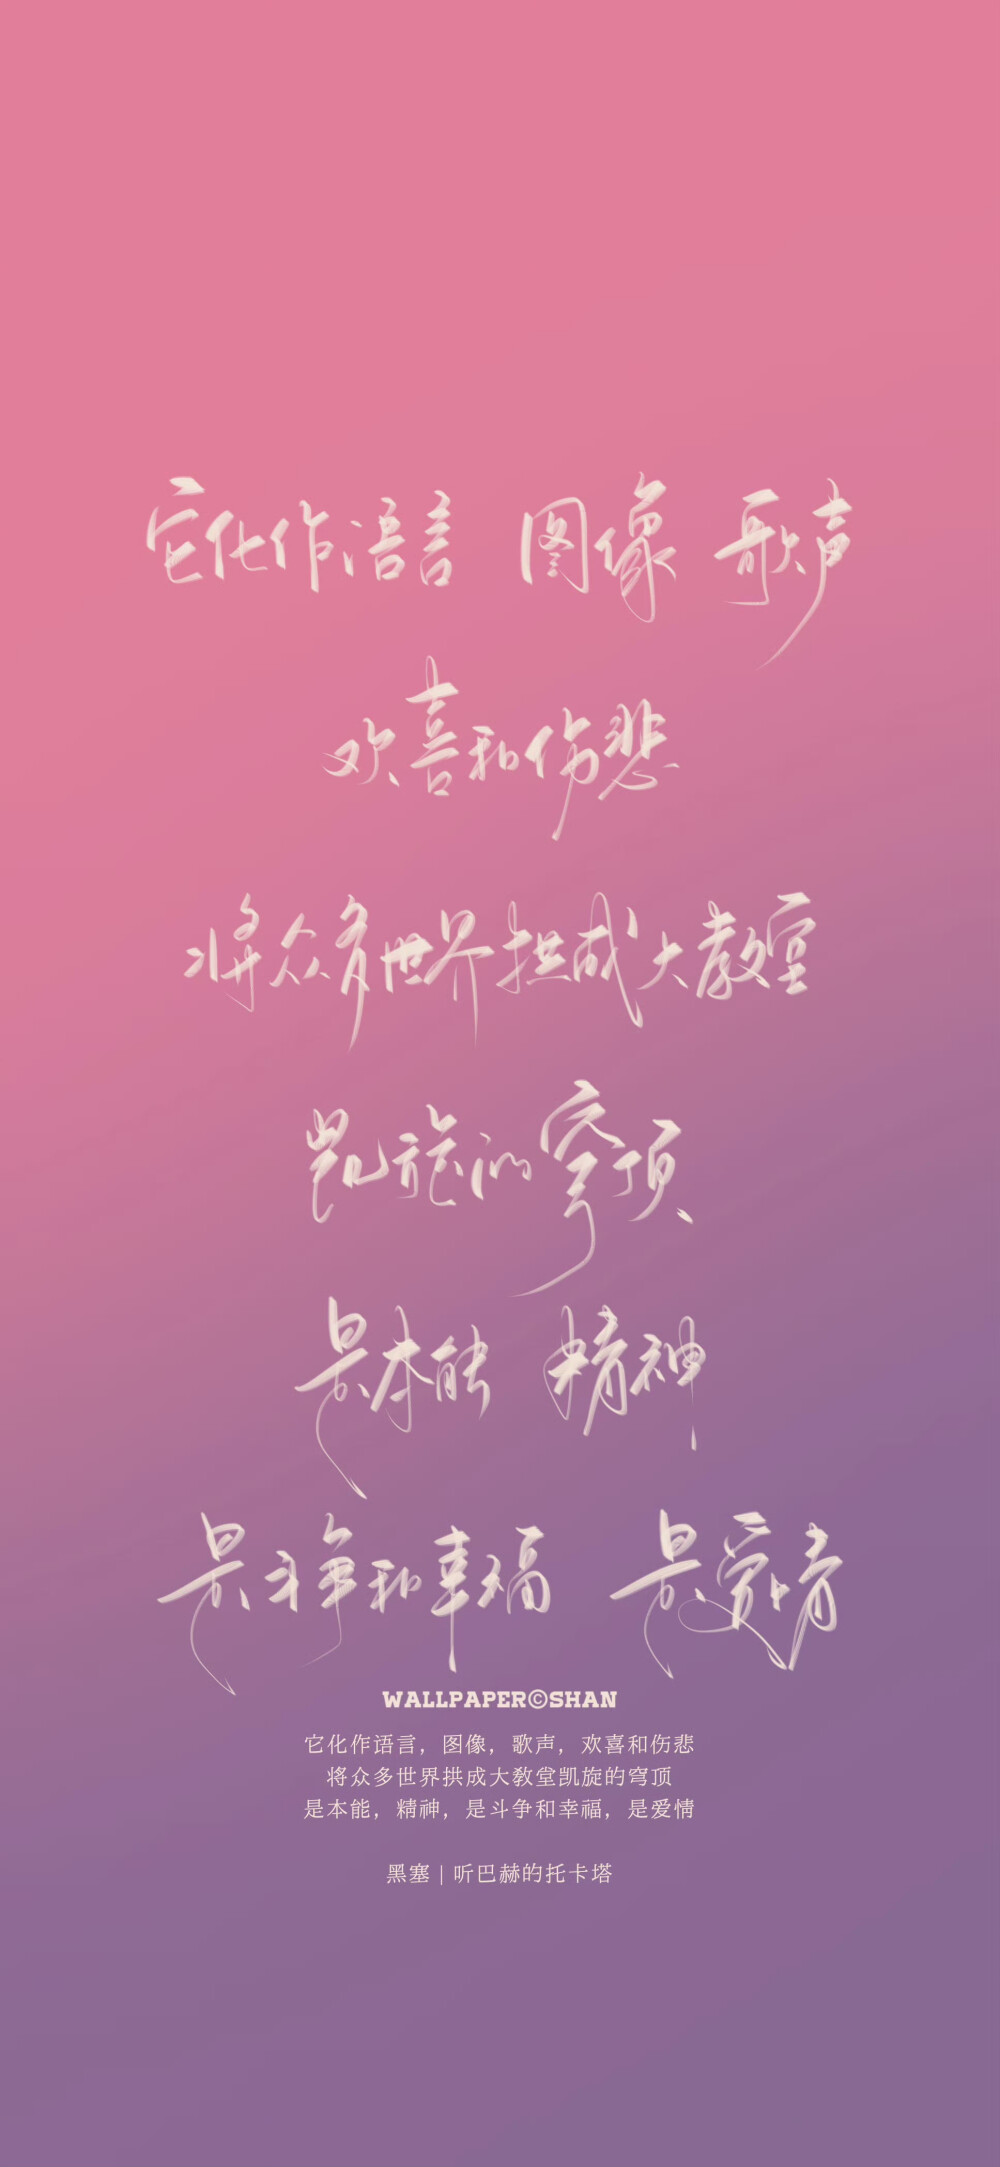 它化作语言 图像 歌声
欢喜和伤悲
将众多世界拱成大教堂
凯旋的穹顶
是本能 精神
是斗争和幸福 是爱情
WALLPAPER©SHAN
它化作语言，图像，歌声，欢喜和伤悲
将众多世界拱成大教堂凯旋的穹顶
是本能，精神，是斗争和幸福，是爱情
黑塞 | 听巴赫的托卡塔